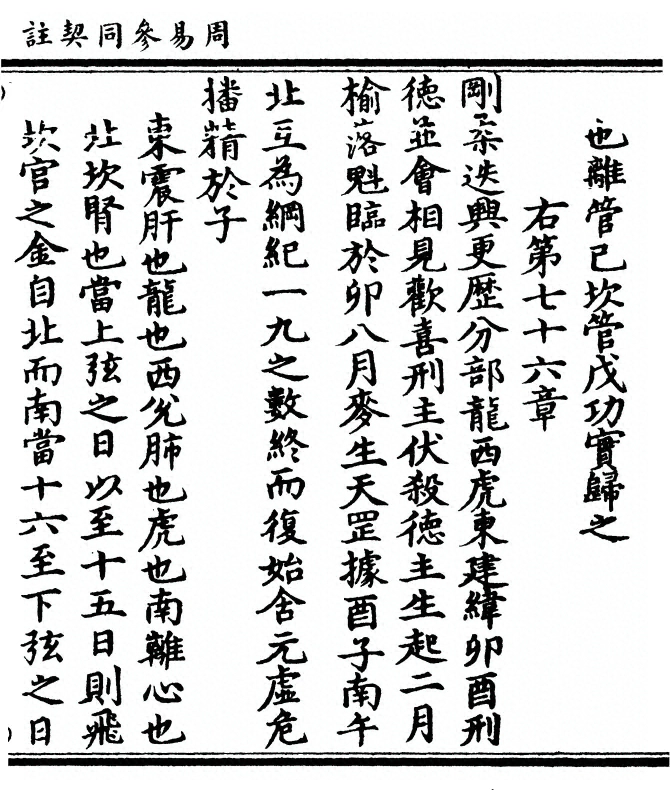 周易參同契註
也離管已坎管戊功實歸之
右第七十六章
剛柔迭興更歷分部龍西虎東建緯卯酉刑
德並會相見歡喜刑主伏殺德主生起二月
榆落魁臨於卯八月麥生天罡據酉子南午
北互為綱紀一九之數終而復始含元虛危
播精於子
東震肝也龍也西兌肺也虎也南離心也
北坎腎也當上弦之日以至十五日則飛
坎宮之金自北而南當十六至下弦之日